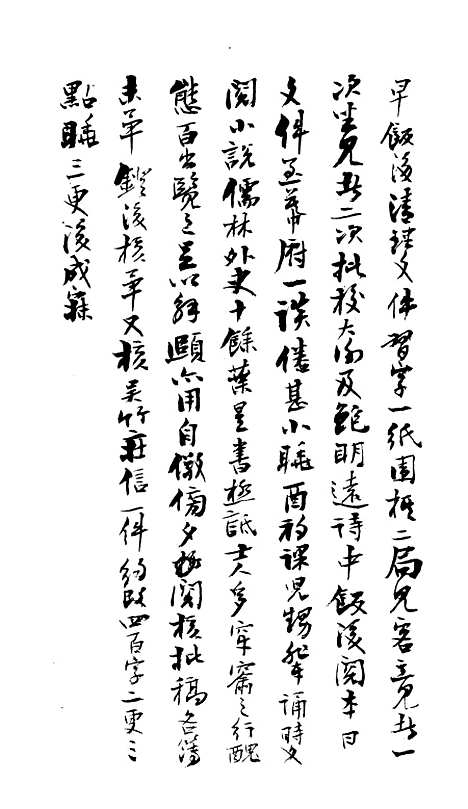 早飯後清理文件習字一紙圍棋二局見客立見者一
次坐見者二次批校大家及鮑明遠詩中飯後閱本日
文件至幕府一談倦甚小睡酉初課兒甥輩誦時文
閱小說儒林外史十餘葉是書極詆士人多穿窬之行醜
態百出覽之足以解頤亦用自儆傍夕又閱核批稿各簿
未畢鐙後核畢又核吳竹莊信一件約改四百字二更三
點睡三更後成寐